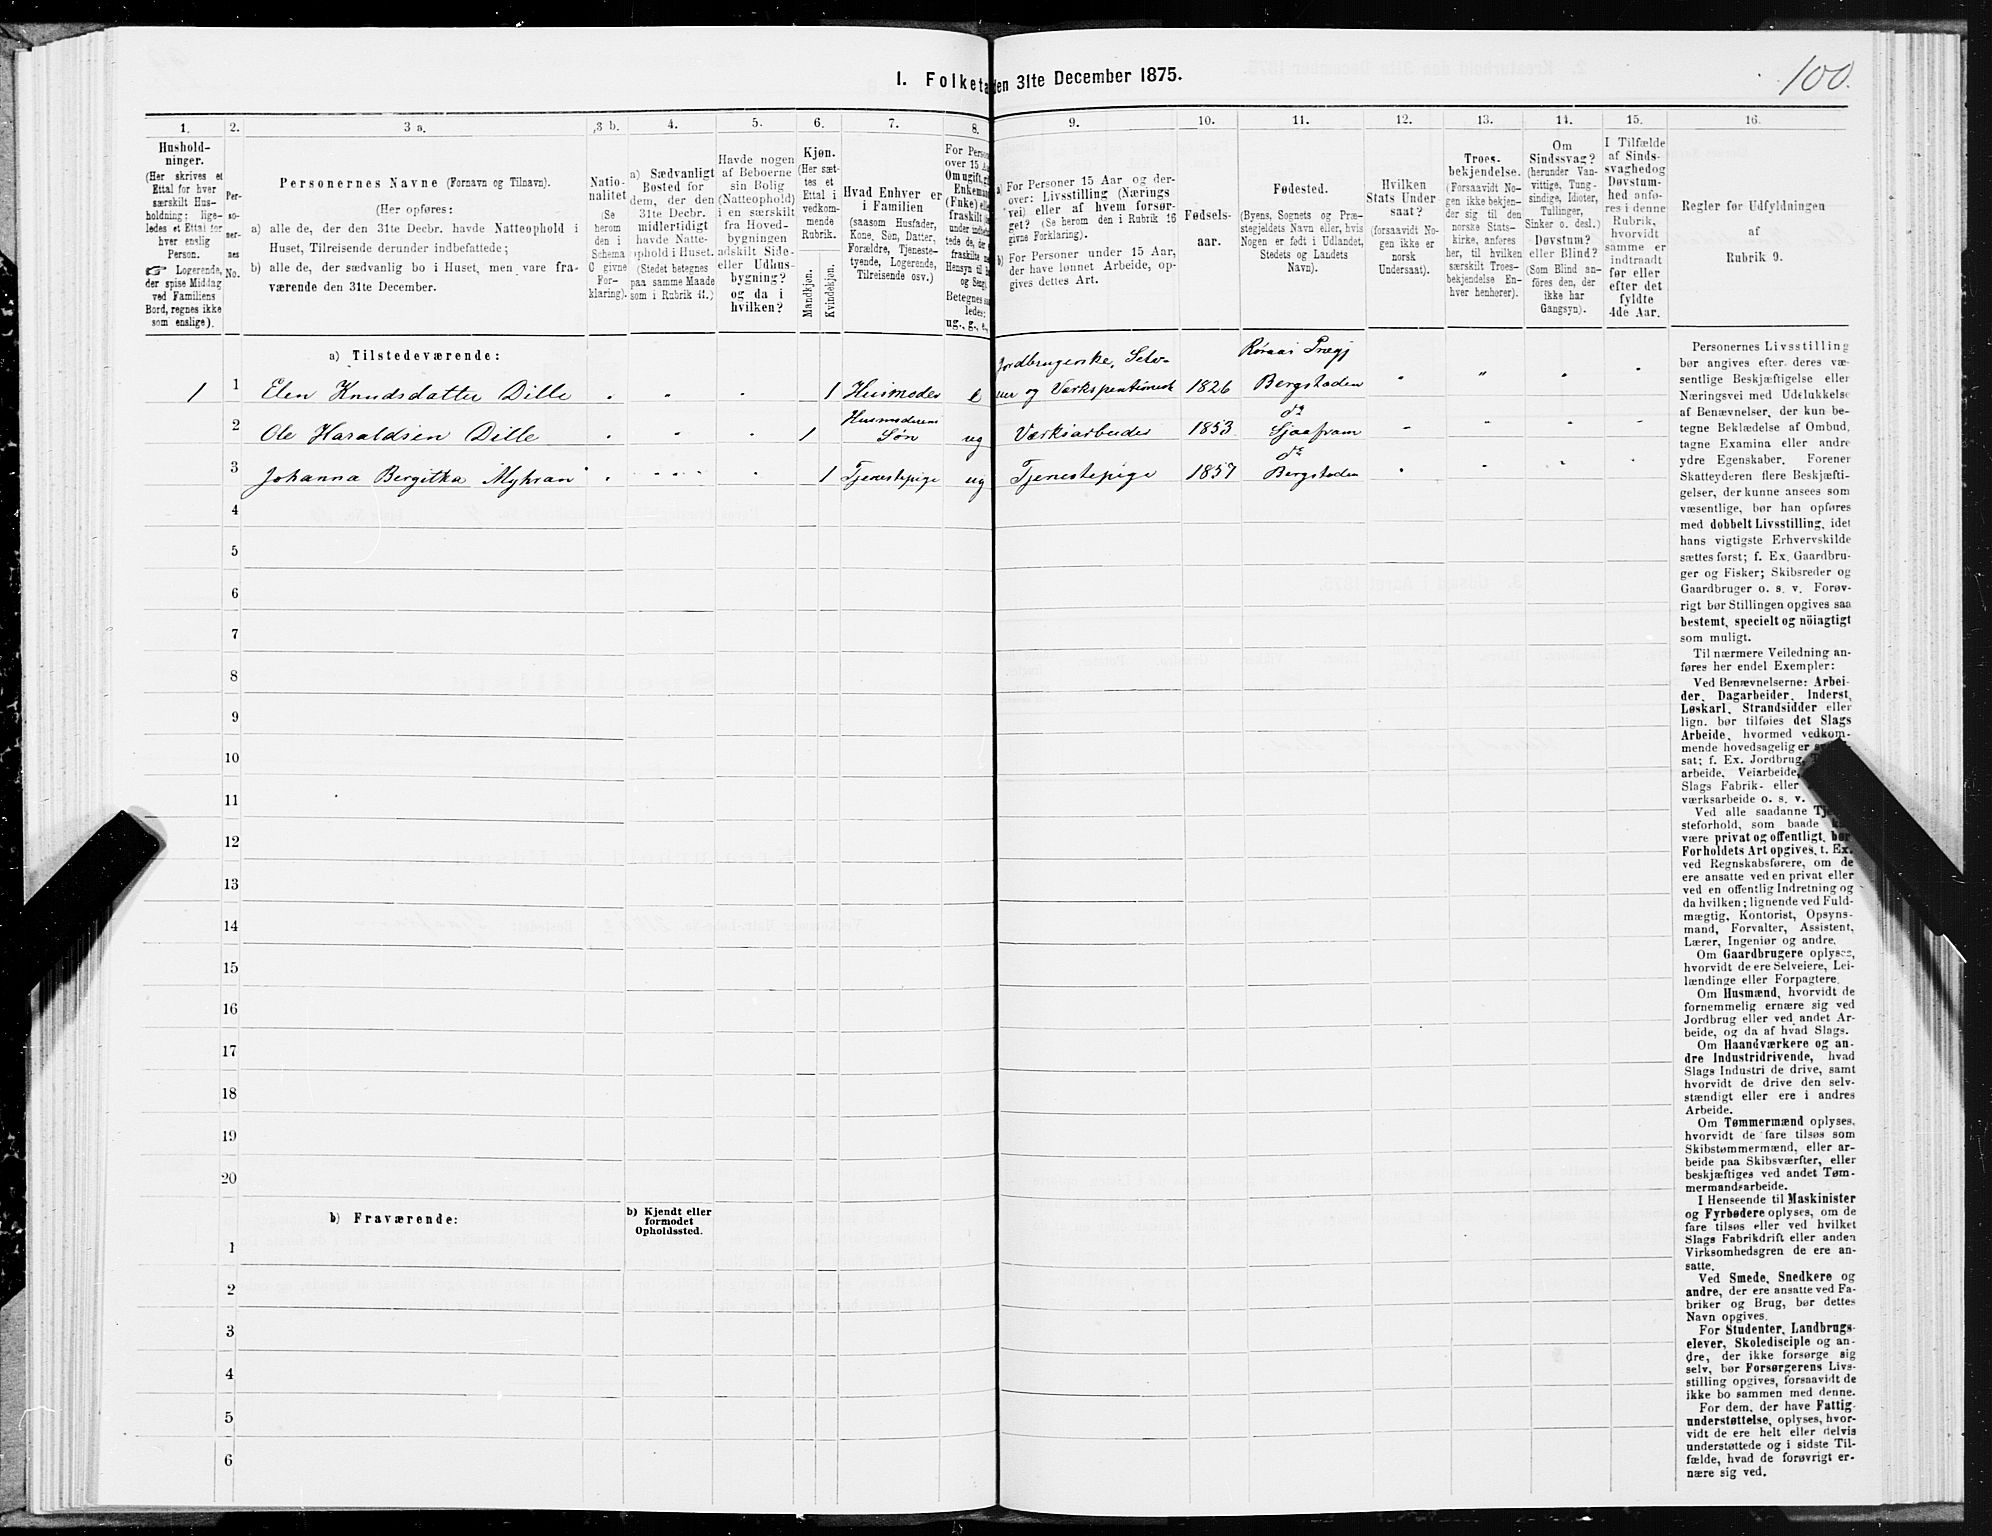 100.
I. Folketæ
den 31te December 1875.
1.
2.
3 a.
3 b.
4.
5.
6.
7.
8.
9.
10.
11.
12.
13.
14.
15.
16.
Hushold-
ninger.
(Her skrives et
Ettal for hver
særskilt Hus-
holdning; lige-
ledes et Ettal for
hver enslig
Person.
☞ Logerende,
der spise Middag
ved Familiens
Bord, regnes ikke
som enslige).
Per-
so-
ner-
nes
No.
Personernes Navne (Fornavn og Tilnavn).
(Her opføres:
a) alle de, der den 31te Decbr. havde Natteophold i
Huset, Tilreisende derunder indbefattede;
b) alle de, der sædvanlig bo i Huset, men vare fra-
værende den 31te December.
Natio-
nalitet
(Se
herom
den i
Schema
C givne
For-
klaring).
a) Sædvanligt
Bosted for
dem, der den
31te Decbr.
midlertidigt
havde Natte-
ophold i Huset.
(Stedet betegnes
paa samme Maade
som i Rubrik 11.)
Havde nogen
af Beboerne
sin Bolig
(Natteophold)
i en særskilt
fra Hoved-
bygningen
adskilt Side-
eller Udhus-
bygning?
og da i
hvilken?
Kjøn.
(Her sæt-
tes et
Ettal i
vedkom-
mende
Rubrik.
Mandkjøn.
Kvindekjøn.
Hvad Enhver er
i Familien
(saasom Husfader,
Kone, Søn, Datter,
Forældre, Tjeneste-
tyende, Logerende,
Tilreisende osv.)
For Perso
over 15 Aa
Om ugift, gif
Enkeman
(Enke) elle
fraskilt
under indbefat-
tede de, der
fraskilte
Hensyn til B
og Seng
Betegnes saa
ledes:
ug., g., e.,
a) For Personer 15 Aar og der-
over: Livsstilling (Nærings
vei) eller af hvem forsør-
get? (Se herom den i Rubrik 16
givne Forklaring).
b) For Personer under 15 Aar,
der have lønnet Arbeide, op-
gives dettes Art.
Fødsels-
aar.
Fødested.
(Byens, Sognets og Præ-
stegjeldets Navn eller, hvis
Nogen er født i Udlandet,
Stedets og Landets
Navn).
Hvilken
Stats Under
saat?
(forsaavidt No-
gen ikke er
norsk
Undersaat).
Troes-
bekjendelse.
(Forsaavidt No-
gen ikke bekjen-
der sig til den
norske Stats-
kirke, anføres
her, til hvilken
særskilt Troes-
bekjendelse En-
hver henhører).
Om
Sindssvag?
(herunder Van-
vittige, Tung-
sindige, Idioter,
Tullinger,
Sinker o. desl.)
Døvstum?
eller Blind?
(Som Blind an-
føres den, der
ikke har
Gangsyn).
I Tilfælde
af Sinds-
svaghed og
Døvstum-
hed anfø-
res i denne
Rubrik.
hvorvidt
samme er
indtraadt
før eller
efter det
fyldte
4de Aar.
Regler for Udfyldningen
af
Rubrik 9.
a) Tilstedeværende:
Jordbrugerske, Selv-
Røraas Prægj
1 1 Elen Knudsdatter Dille 1 Husmoder e
eier og Værkspentionist 1826 Bergstaden
2 Ole Haraldsen Dille 1 Husmoderens
Søn ug Værksarbeider 1853 do
Sjaafram
3 Johanna Bergitha Myhran 1 Tjenestepige ug Tjenestepige 1857 do
Bergstaden
4
5
6
7
8
9
10
11
12
13
14
15
16
17
18
19
20
b) Fraværende:
b) Kjendt eller
formodet
Opholdssted.
1
2
3
4
5
6
Personernes Livsstilling
bør angives efter deres væ-
sentlige Beskjæftigelse eller
Næringsvei med Udelukkelse
af Benævnelser, der kun be-
tegne Beklædelse af Ombud,
tagne Examina eller andre
ydre Egenskaber. Forener
Skatteyderen flere Beskjæfti-
gelser, der kunne ansees som
væsentlige, bør han opføres
med dobbelt Livsstilling, idet
hans vigtigste Erhvervskilde
sættes først; f. Ex. Gaardbru-
ger og Fisker; Skibsreder og
Gaardbruger o. s. v. Forøv-
rigt bør Stillingen opgives saa
bestemt, specielt og nöiagtigt
som muligt.
Til nærmere Veiledning an-
føres her endel Exempler:
Ved Benævnelserne: Arbei-
der, Dagarbeider, Inderst,
Løskarl, Strandsidder eller
lign. bør tilføies det Slags
Arbeide, hvormed vedkom-
mende hovedsagelig er
sat; f. Ex. Jordbrug,
arbeide, Veiarbeide,
Slags Fabrik- eller
værksarbeide o. s. v.
Ved alle saadanne Tje
steforhold, som baade
være privat og offentligt, bør
Forholdets Art opgives, t. Ex.
ved Regnskabsførere, om de
ere ansatte ved en privat eller
ved en offentlig Indretning og
da hvilken; lignende ved Fuld-
mægtig, Kontorist, Opsyns-
mand, Forvalter, Assistent,
Lærer, Ingeniør og andre.
Om Gaardbrugere oplyses,
hvorvidt de ere Selveiere, Lei-
lændinge eller Forpagtere.
Om Husmænd, hvorvidt de
fornemmelig ernære sig ved
Jordbrug eller ved andet Ar-
beide, og da af hvad Slags.
Om Haandværkere og an-
dre Industridrivende, hvad
Slags Industri de drive, samt
hvorvidt de drive den selv-
stændigt eller ere i andres
Arbeide.
Om Tømmermænd oplyses,
hvorvidt de fare tilsøs som
Skibstømmermænd, eller ar-
beide paa Skibsværfter, eller
beskjæftiges ved andet Tøm-
mermandsarbeide.
I Henseende til Maskinister
og Fyrbødere oplyses, om de
fare tilsøs eller ved hvilket
Slags Fabrikdrift eller anden
Virksomhedsgren de ere an-
satte.
Ved Smede, Snedkere og
andre, der ere ansatte ved Fa-
briker og Brug, bør dettes
Navn opgives.
For Studenter, Landbrugs-
elever, Skoledisciple og an-
dre, der ikke forsørge sig
selv, bør Forsørgerens Livs-
stilling opgives, forsaavidt de
ikke bo sammen med denne.
For dem, der have Fattig-
understøttelse, oplyses, hvor-
vidt de ere helt eller delvis
understøttede og i sidste Til-
fælde, hvad de forøvrigt er-
nære sig ved.